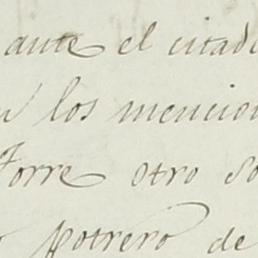 ante el citad
los mencion
Torre otro so
potrero de